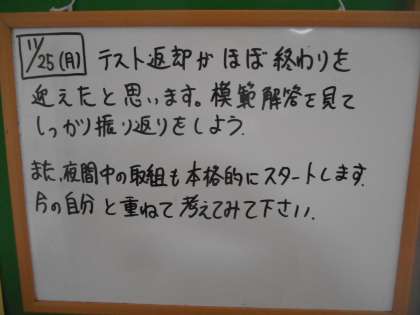 11/25(月) テスト返却がほぼ終わりを
迎えたと思います。模範解答を見て
しっかり振り返りをしよう.
また、夜間中の取組も本格的にスタートします.
今の自分と重ねて考えてみて下さい.